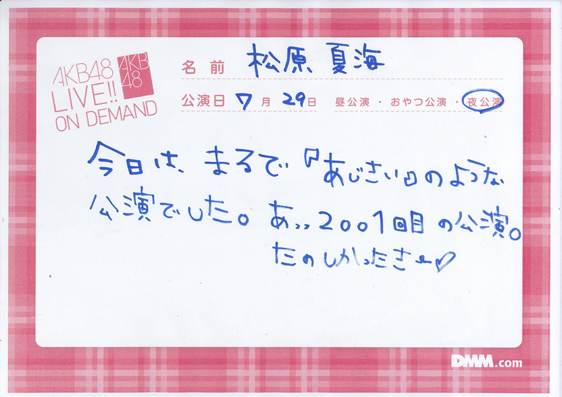 AKB48
LIVE!!
ON DEMAND
AKB
48
名前 松原 夏海
公演日 7月29日 昼公演・おやつ公演・夜公演
今日は、まるで『あじさい』のような
公演でした。あっっ2001回目の公演。
たのしかったさー♡
DMM.com